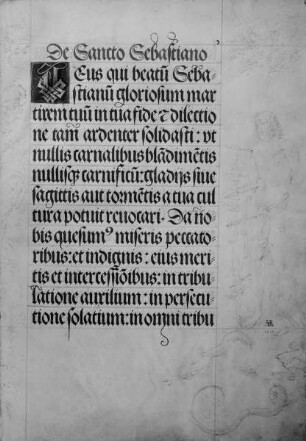 De Sancto Sebastiano
DEus qui beatū Seba-
stianū gloriosum mar
tirem tuū in tua fide ⁊ dilectio
ne tam ardenter solidasti: vt
nullis carnalibus blādimētis
nullisq; carnificū: gladijs siue
sagittis aut tormētis a tua cul
tura potuit reuocari. Da no
bis quesumꝰ miseris peccato
ribus: et indignis: eius meri
tis et intercessiōibus: in tribu
latione auxilium: in persecu
tione solatium: in omni tribu